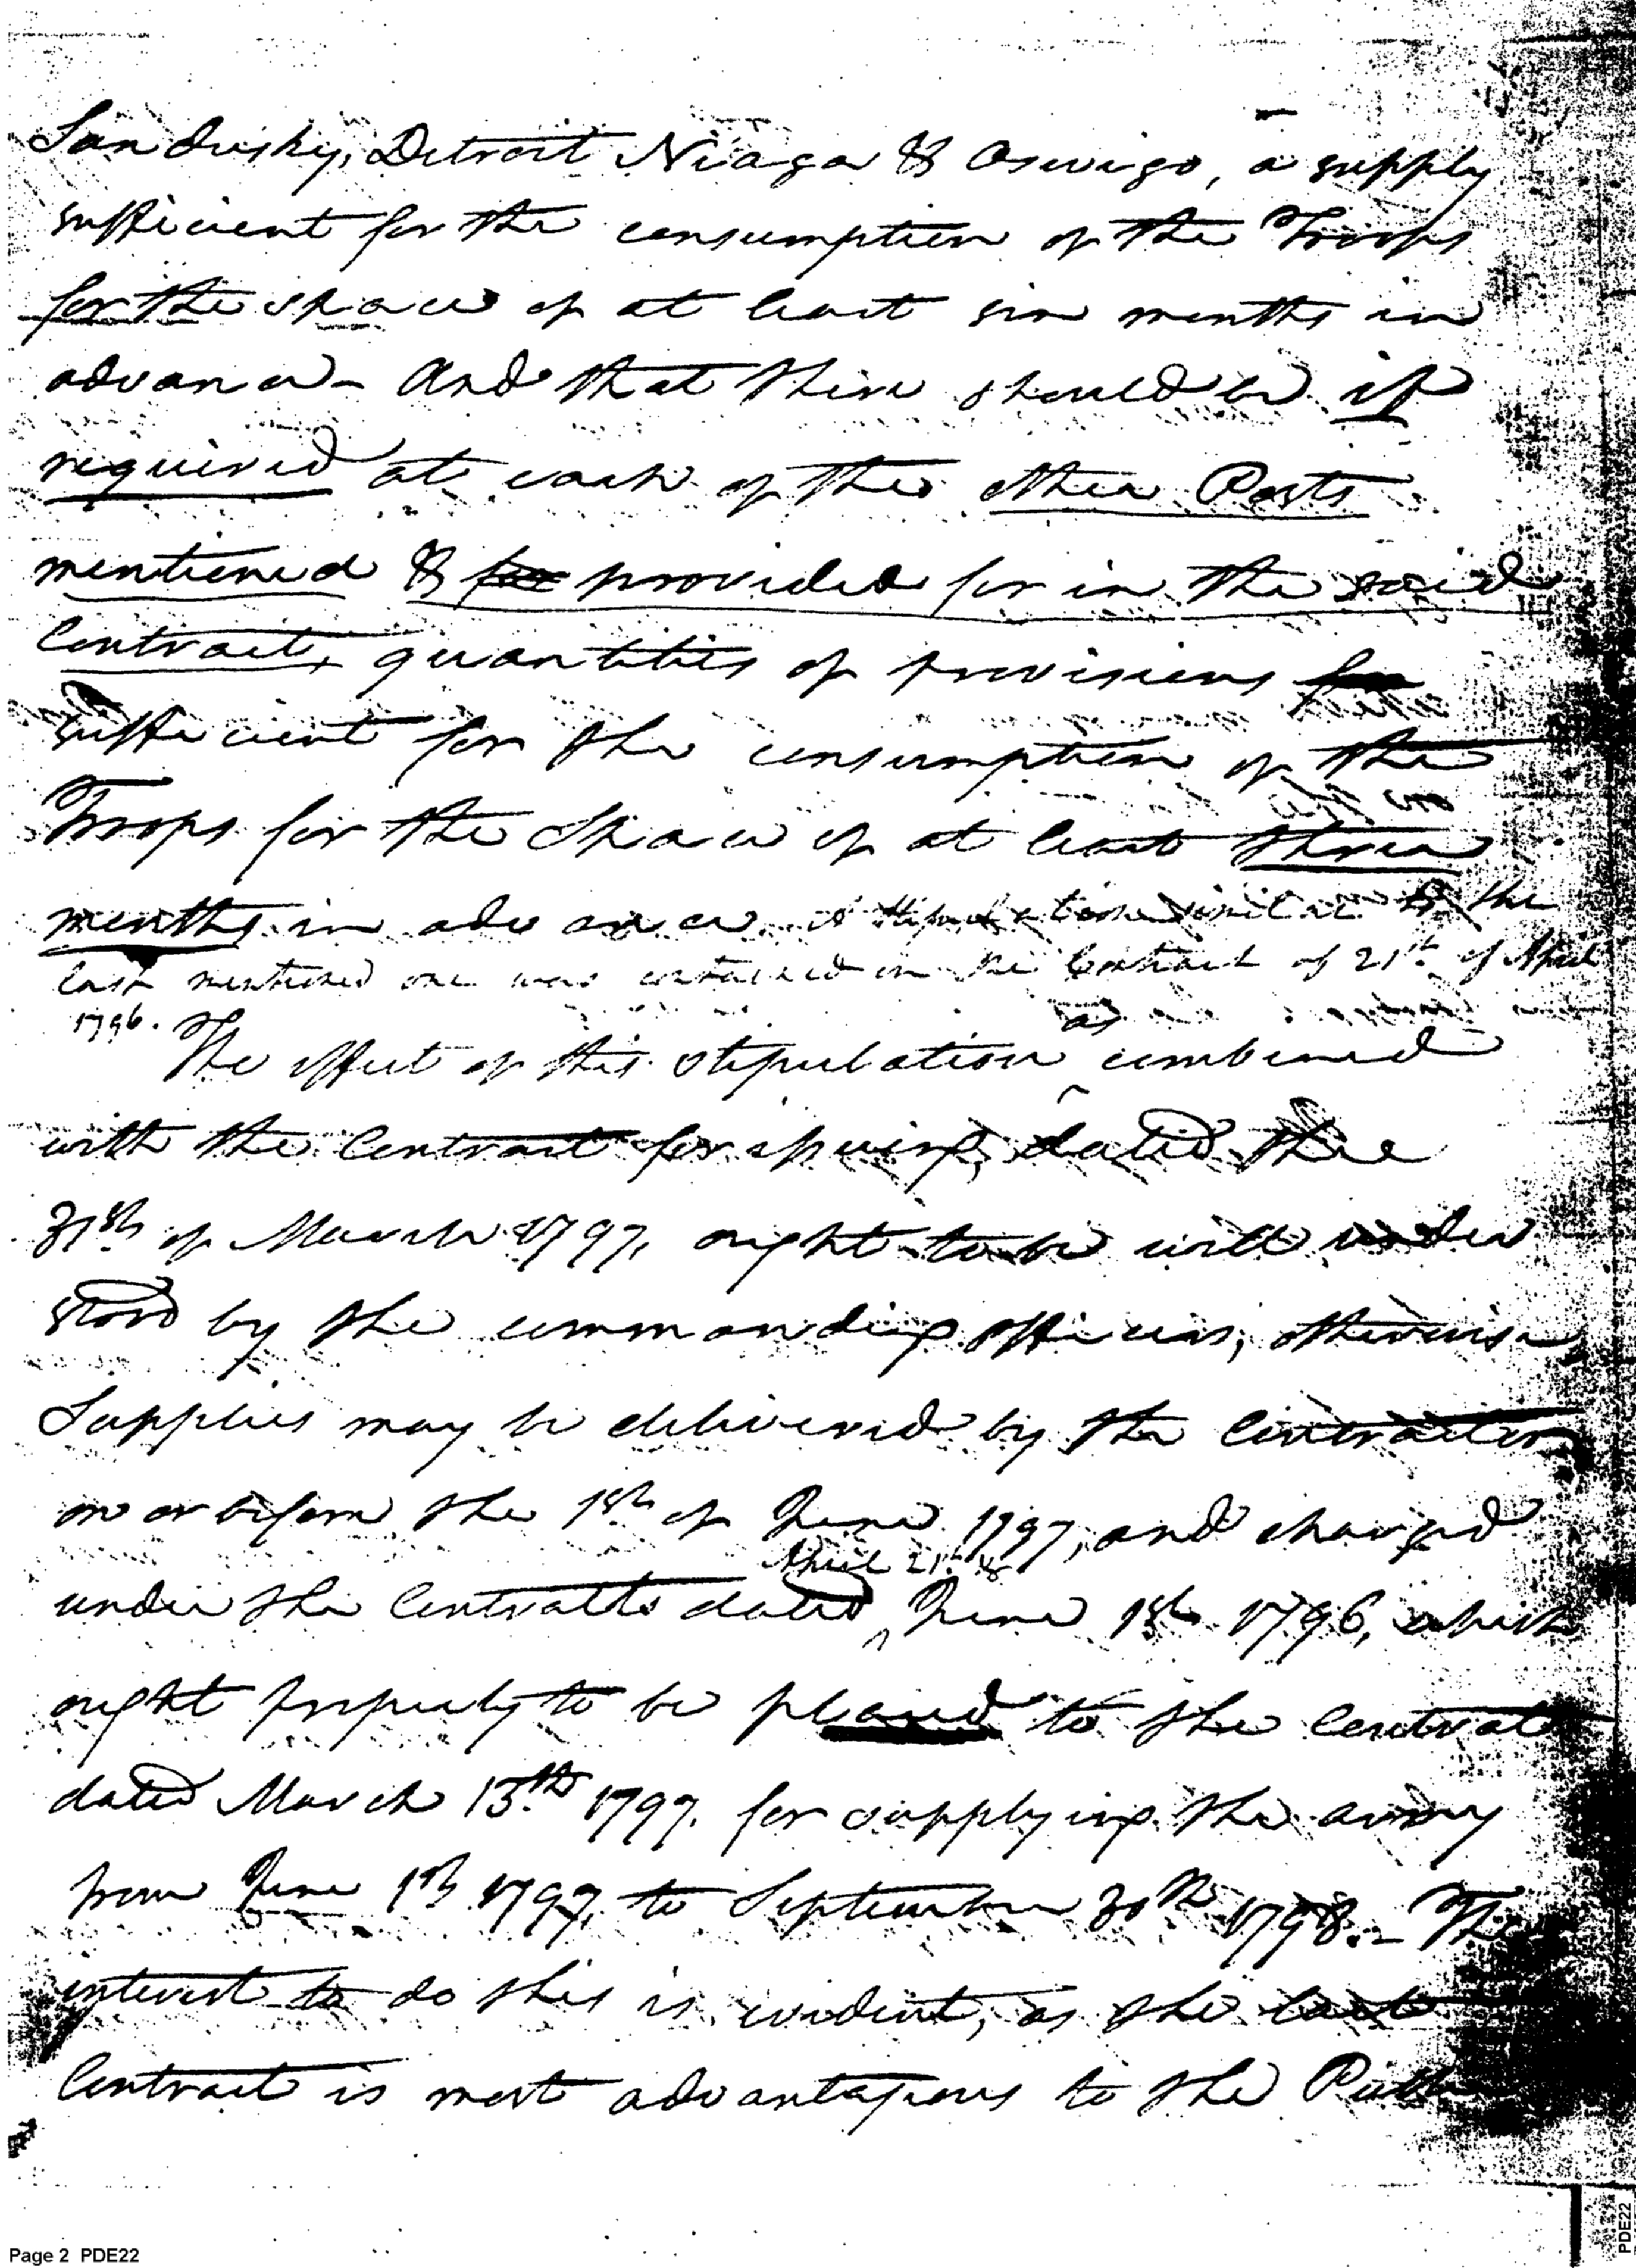 Sandusky, Detroit Niaga & Oswigo, a supply
sufficient for the consumption of the Troops
for the space of at least six months in
advance - And that there should be if
required at each of the other Posts
mentioned & for provided for in the said
Contract, quantities of provisions for
sufficient for the consumption of the
Troops for the Space of at least three
months in advance. A stipulation similar to the
last mentioned one was contained in the Contract of 21st of April
1796.
as
The effect of this stipulation combined
with the Contract for dated the
31st of March 1797, ought to be well under
stood by the commanding officers; otherwise
Supplies may be delivered by the Contractors
on or before the 1st of June 1797, and charged
April 21st &
under the Contracts dated June 1st 1796, which
ought properly to be placed to the Contract
dated March 13th 1797. for supplying the army
from June 1st 1797, to September 30th 1798. - The
interest to do this is evident, as the last
Contract is most advantageous to the
Page 2 PDE22
PDE22